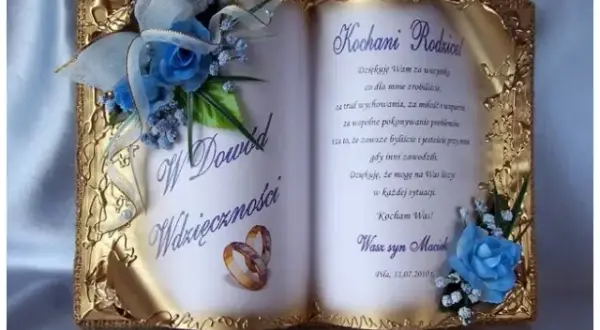 W Dowód
Wdzięczności
Kochani Rodzice!
Dziękuję Wam za wszystko
co dla mnie zrobiliście,
za trud wychowania, za miłość i wsparcie,
za wspólne pokonywanie problemów
i za to, że zawsze byliście i jesteście przy mnie
gdy inni zawodzili.
Dziękuję, że mogę na Was liczyć
w każdej sytuacji.
Kocham Was!
Wasz syn Maciek
Piła, 31.07.2010 r.